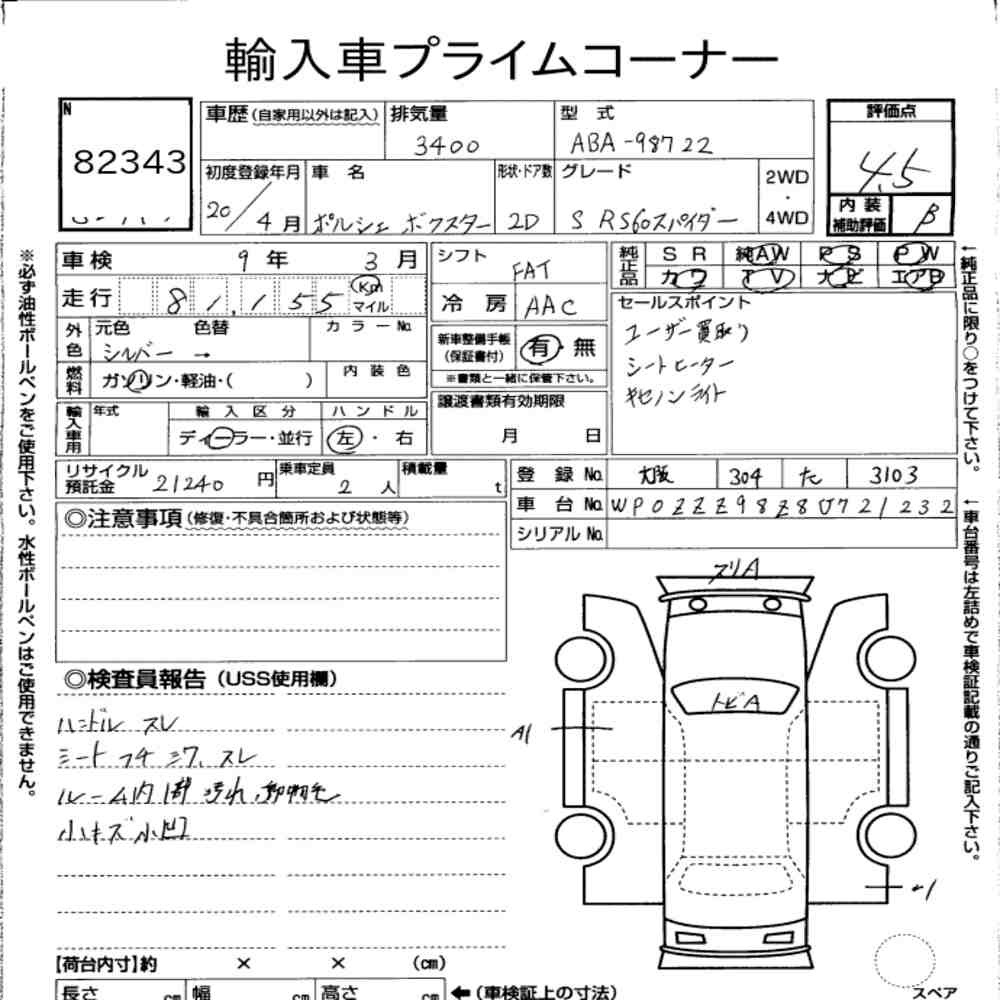 輸入車プライムコーナー
N
82343
車歴(自家用以外は記入)
排気量
3400
型 式
ABA-98722
評価点
4.5
初度登録年月
20/4月
車 名
ポルシェ ボクスター
形状・ドア数
2D
グレード
S RS60スパイダー
2WD
・
4WD
内 装
補助評価
β
車検
9 年 3 月
シフト
FAT
純正品
SR 純AW PS PW
カワ TV ナビ エアB
走行
81,155
Km
マイル
冷房
AAC
セールスポイント
ユーザー買取り
シートヒーター
キセノンライト
外色
元色 色替
シルバー →
カラーNo.
新車整備手帳
(保証書付)
有・無
※書類と一緒に保管下さい。
燃料
ガソリン・軽油・( )
内装色
輸入車用
年式
輸入区分
ディーラー・並行
ハンドル
左・右
譲渡書類有効期限
月 日
リサイクル
預託金
21240 円
乗車定員
2 人
積載量
t
登録No.
大阪 304 た 3103
車台No.
WP0ZZZ98Z8U721232
シリアルNo.
◎注意事項(修復・不具合箇所および状態等)
◎検査員報告(USS使用欄)
ハンドル スレ
シート フチ シワ、スレ
小キズ小凹
スリA
トビA
A1
【荷台内寸】約 × × (cm)
長さ cm 幅 cm 高さ cm
←(車検証上の寸法)
スペア
※必ず油性ボールペンをご使用下さい。水性ボールペンはご使用できません。
←純正品に限り○をつけて下さい。
←車台番号は左詰めで車検証記載の通りご記入下さい。